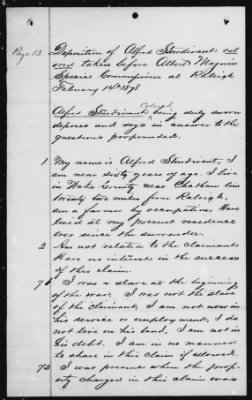 Page 13
Deposition of Alfred Sturdivant col
ored taken before Albert Magnin
Special Commissioner at Raleigh
February 14th 1878
Alfred Sturdivant Colored being duly sworn
deposes and says in answer to the
questions propounded.
1 My name is Alfred Sturdivant, I
am near sixty years of age. I live
in Wake County, near Chatham line
twenty two miles from Raleigh,
am a farmer by occupation, Have
lived at my present residence
ever since the surrender.
2 Am not related to the claimants
Have no interest in the success
of this claim.
71 I was a slave at the beginning
of the war, I was not the slave
of the claimant, I am not now in
his service or employment; I do
not live on his land, I am not in
his debt. I am in no manner
to share in this claim if allowed.
72 I was present when the prop-
erty charged in this claim was